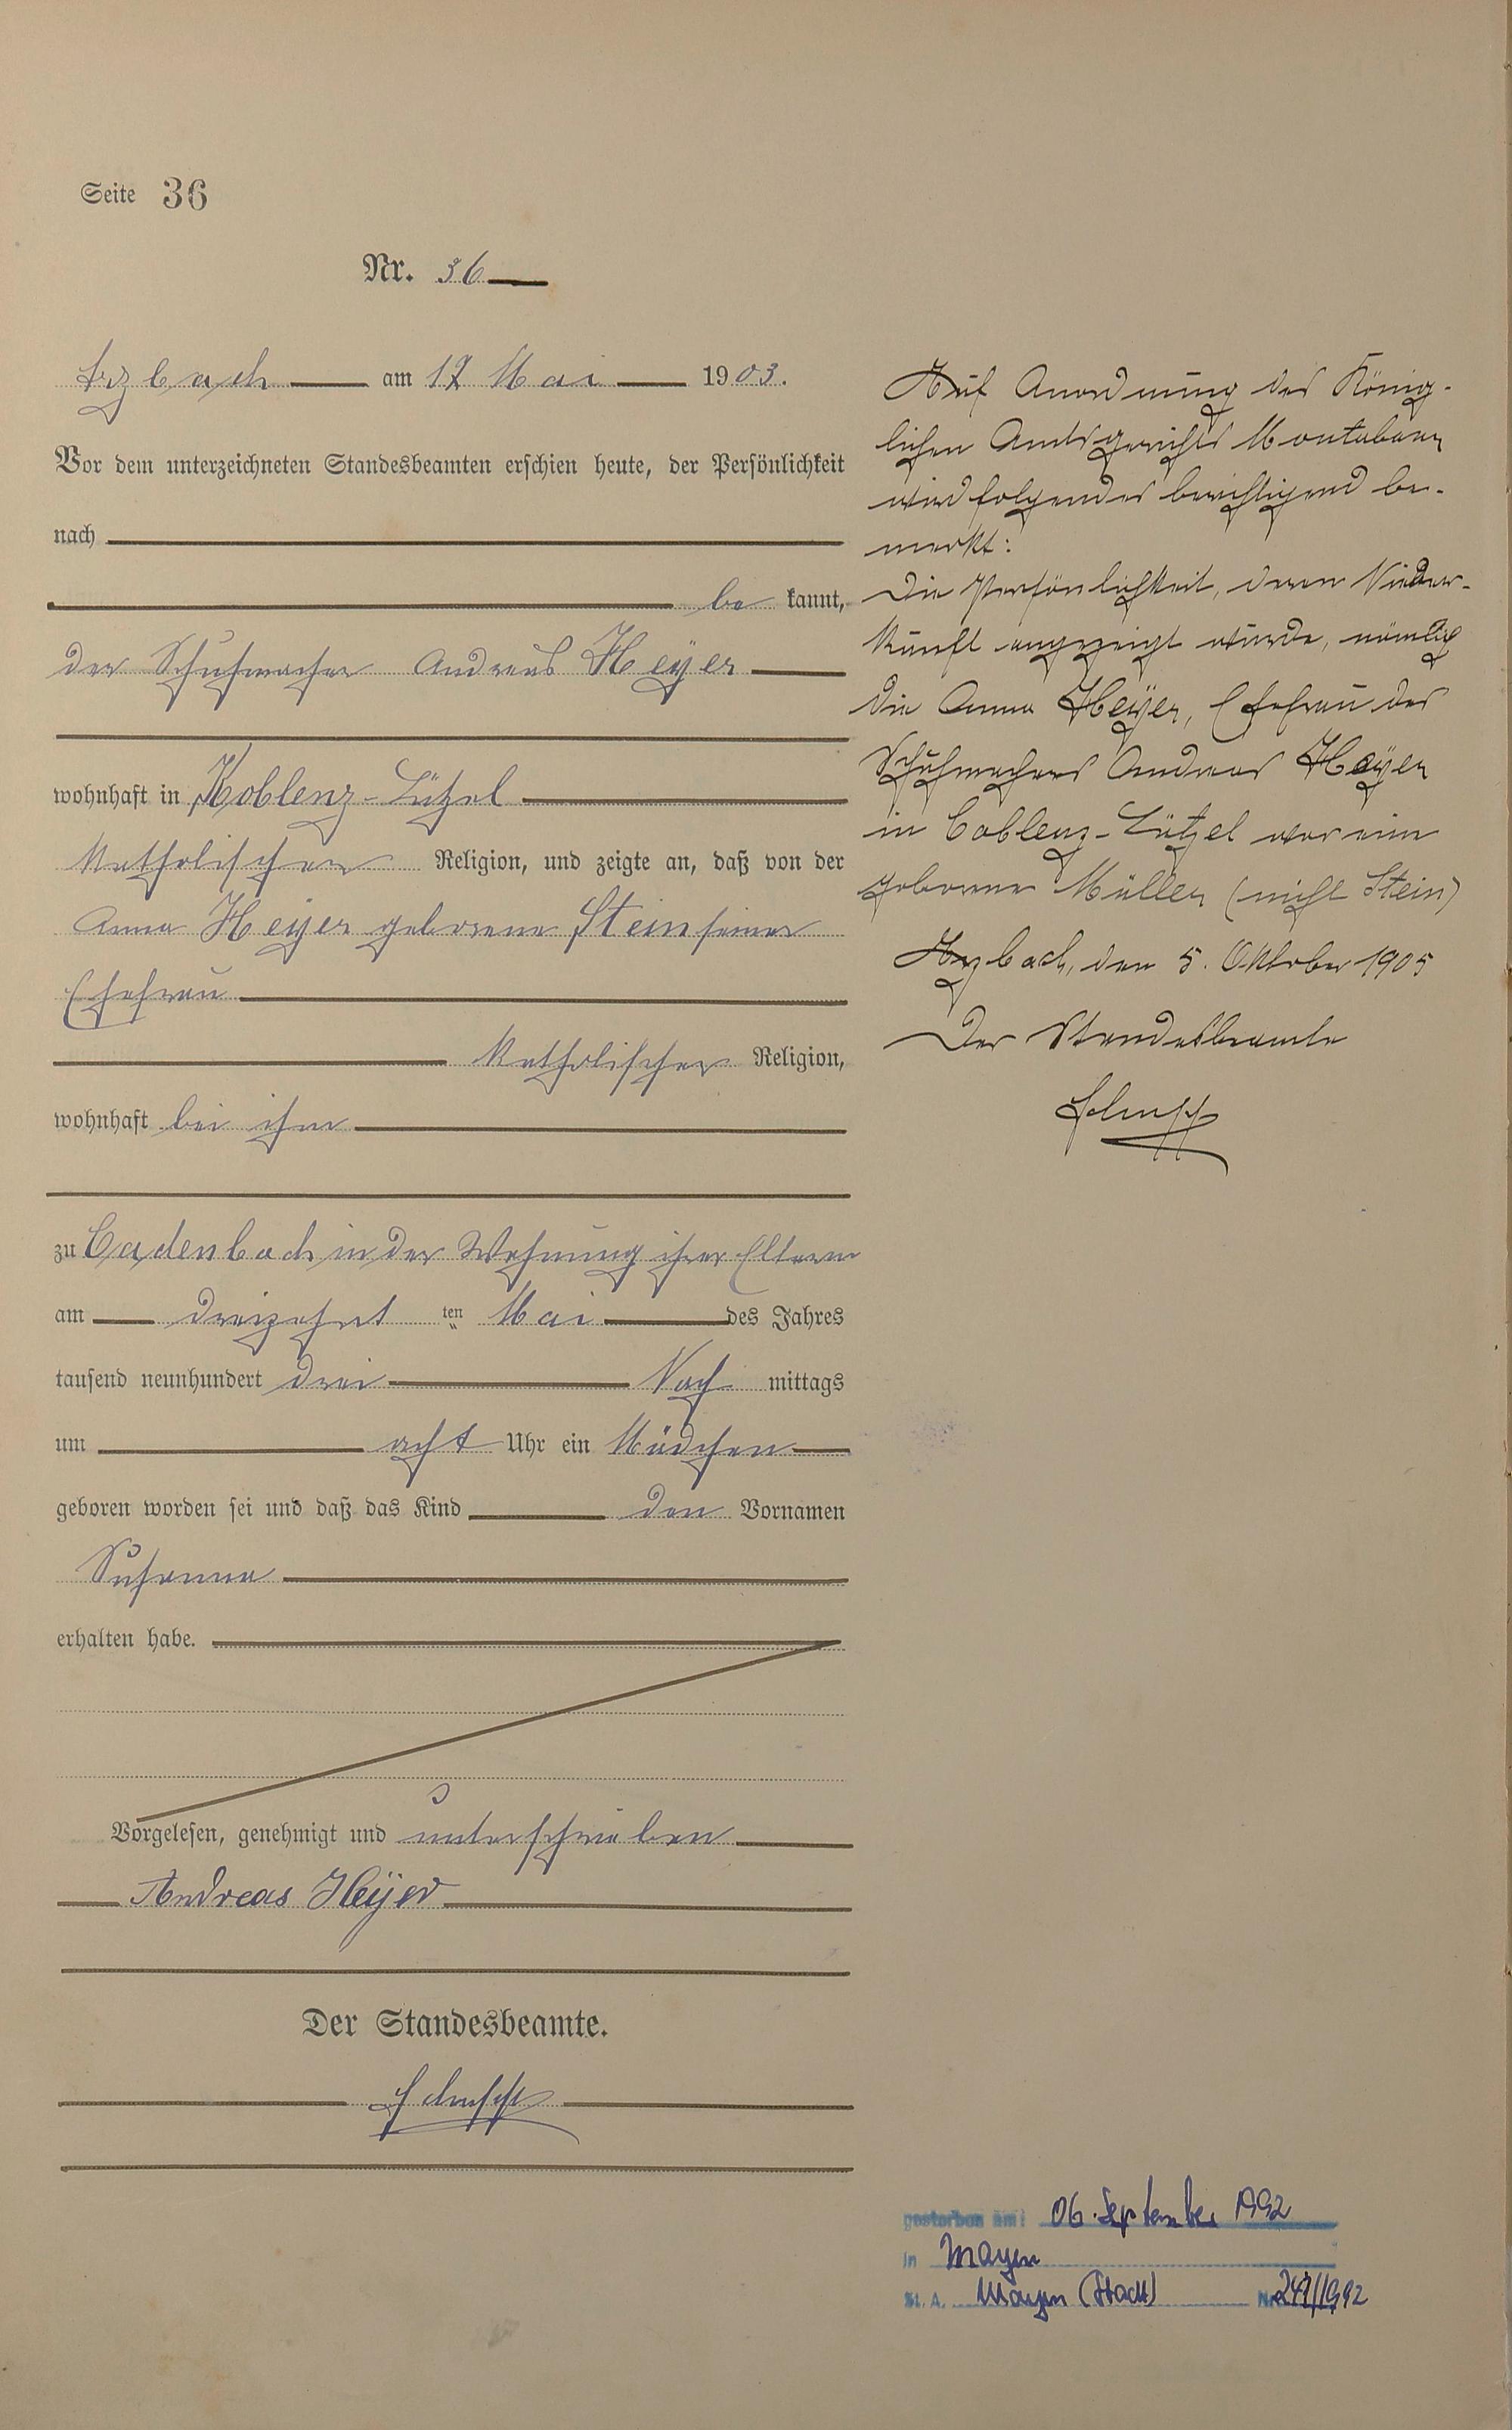 Seite 36
Nr. 36
Arzbach am 17 Mai 1903.
Vor dem unterzeichneten Standesbeamten erschien heute, der Persönlichkeit
nach
be kannt,
der Schuhmacher Andreas Heyer
wohnhaft in Koblenz-Lützel
katholischer Religion, und zeigte an, daß von der
Anna Heyer geborene Stein seiner
Ehefrau
katholischer Religion,
wohnhaft bei ihm
zu Cadenbach in der Wohnung ihrer Eltern
am dreizehnt ten Mai des Jahres
tausend neunhundert drei Nach mittags
um acht Uhr ein Mädchen
geboren worden sei und daß das Kind den Vornamen
Susanna
erhalten habe.
Vorgelesen, genehmigt und unterschrieben
Andreas Heyer
Der Standesbeamte.
Auf Anordnung des König-
lichen Amtsgerichts Montabaur
wird folgendes berichtigend be-
merkt:
Die Persönlichkeit, deren Nieder-
kunft angezeigt wurde, nämlich
die Anna Heÿer, Ehefrau des
Schuhmachers Andreas Heÿer
in Coblenz-Lützel war eine
geborene Müller (nicht Stein)
Arzbach, den 5. Oktober 1905
Der Standesbeamte
gestorben am: 06. September 1992
in Mayen
St. A. Mayen (Stadt) Nr. /1992